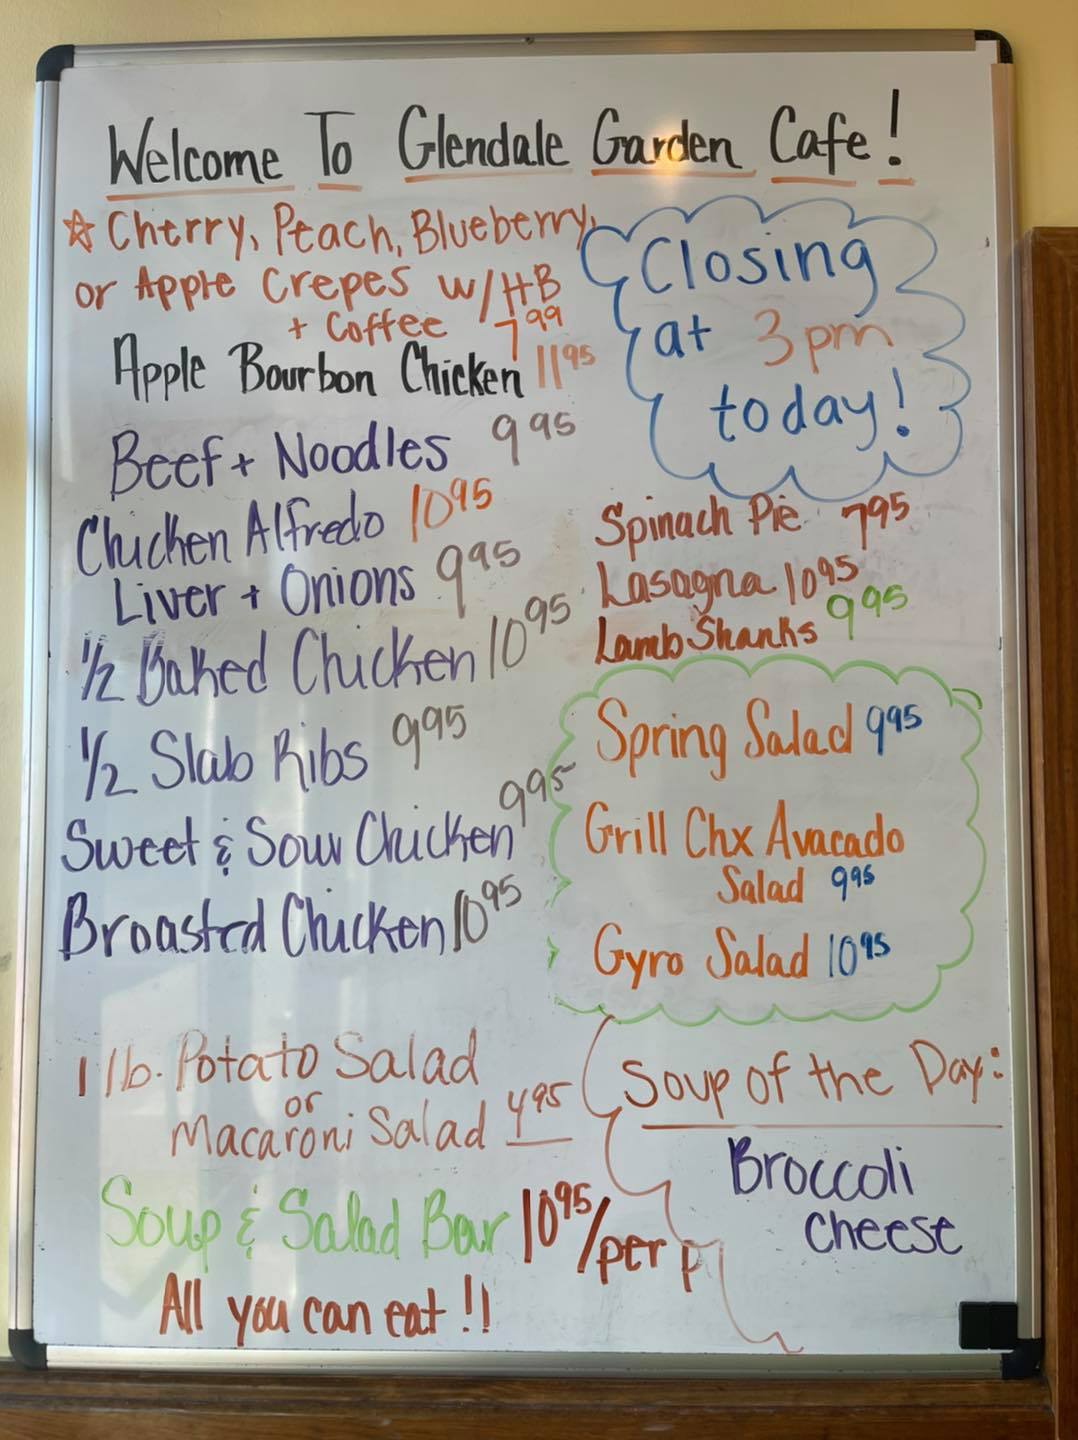 Welcome To Glendale Garden Cafe!
☆ Cherry, Peach, Blueberry,
or Apple Crepes w/HB
+ Coffee 7 99
Apple Bourbon Chicken 11 95
Beef + Noodles 9 95
Chicken Alfredo 10 95
Liver + Onions 9 95
1/2 Baked Chicken 10 95
1/2 Slab Ribs 9 95
Sweet & Sour Chicken 9 95
Broasted Chicken 10 95
1 lb. Potato Salad
or
Macaroni Salad 4 95
Soup & Salad Bar 10 95/per p
All you can eat!!
Closing
at 3pm
today!
Spinach Pie 7 95
Lasagna 10 95
Lamb Shanks 9 95
Spring Salad 9 95
Grill Chx Avacado
Salad 9 95
Gyro Salad 10 95
Soup of the Day:
Broccoli
Cheese